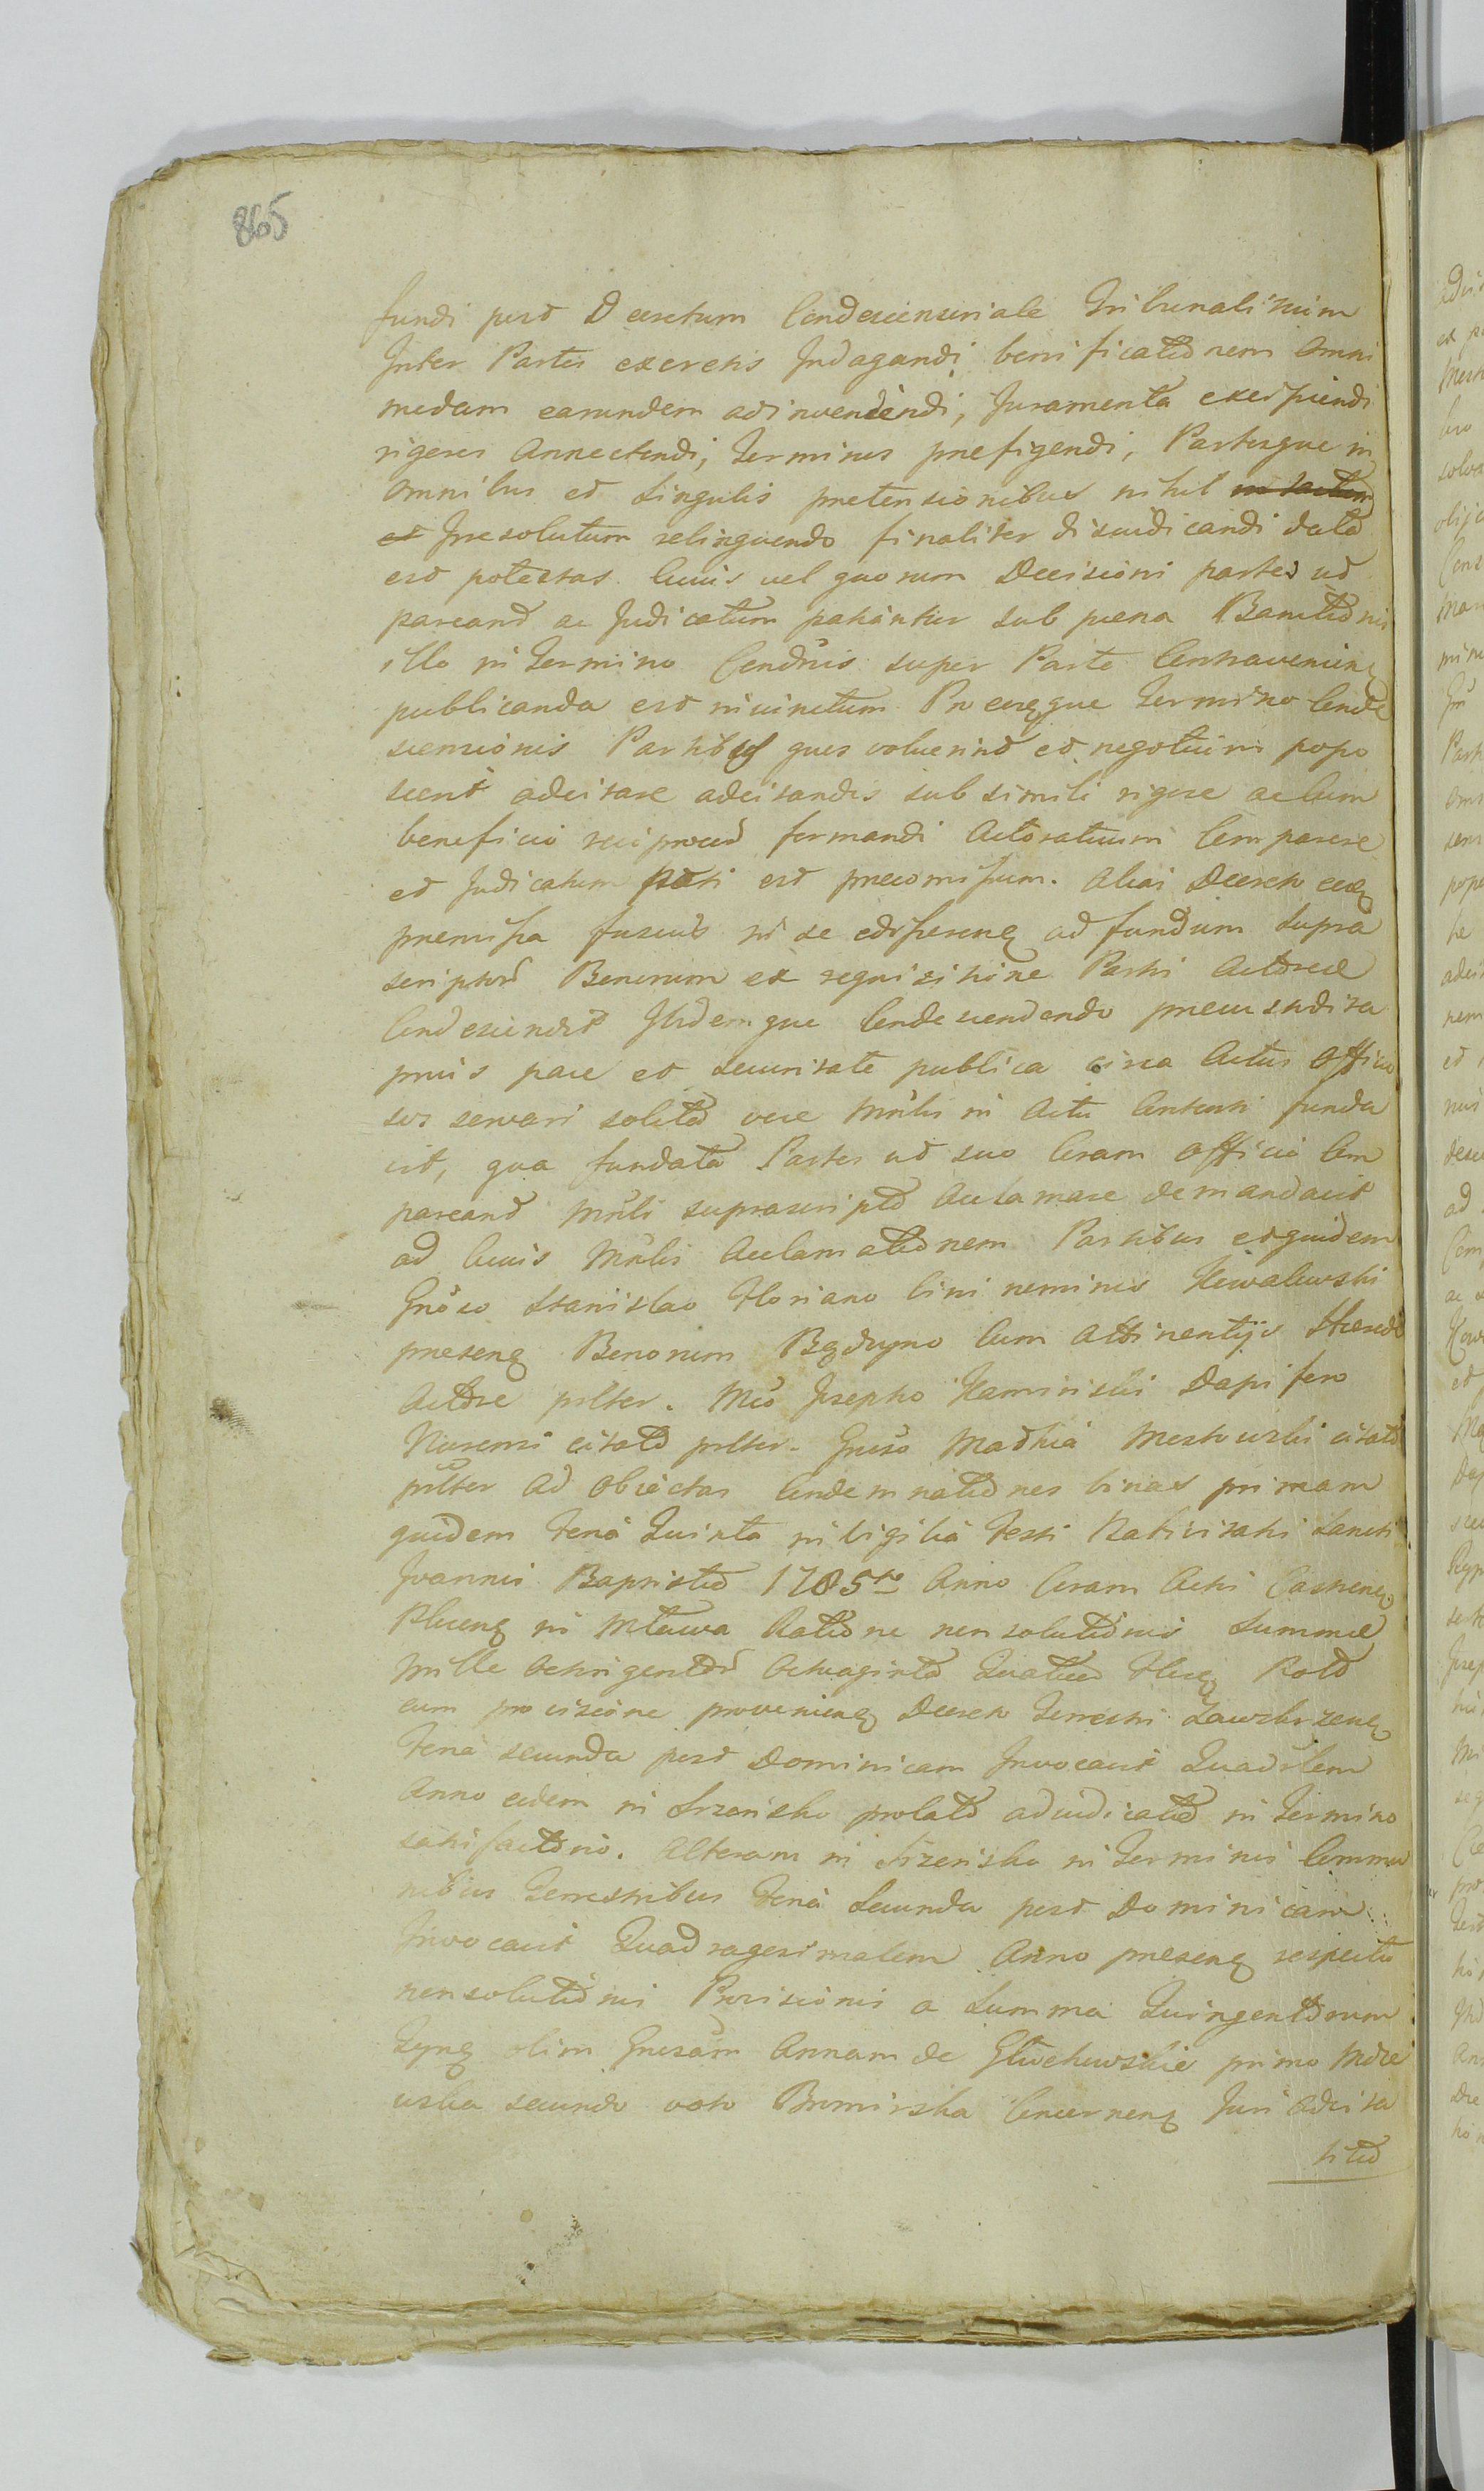 865
fundi post Decretum Condescensoriale Tribunalitium
Inter Partes exercitis Indagandi verificationem omni
modam earundem adinveniendi, Juramenta excipiendi
rigores Annectendi, Terminos praefigendi, Partesque in
omnibus et singulis pretensionibus nihil
Irresolutum relinquendo finaliter diiudicandi data
est potestas. Cuius vel quorum Decisioni partes ut
pareant ac Judicatum patiantur sub poena Bannitionis
illo in Termino Condnis super Parte Contravenien
publicanda est iniunctum Pro eoque Termino Conde
scensionis Partibus quos voluerint et negotium popo
scerit adcitare adcitandis sub simili rigore ac Cum
beneficio reciproce formandi Actoratuum Comparere
et Judicatum pati est praecomissum. Alias Decreto eo
premissa fusius in se edisseren ad fundum supra
scriptor Bonorum ex requisitione Partis Actoreae
Condescendit Ibidemque Condescendendo praecustodita
prius pace et securitate publica circa Actus Officio
sos servari solita voce Mnlis in Actu Contenti funda
vit, qua fundata Partes ut suo Coram Officio Com
pareant Mnli suprascripto Acclamare demandavit
ad Cuius Mnlis Acclamationem Partibus et quidem
Gnoso Stanislao Floriano bini nominis Kowalewski
presen Bonorum Bądzyno Cum Attinentijs Haerede
Actore prlter. Mco Josepho Kaminski Dapifero
Nurensi citato prlter. Gnoso Mathia Mostowski citato
prlter ad obiectas Condemnationes binas primam
quidem Feria Quinta in Vigilia Festi Nativitatis Sancti
Joannis Baptistae 1785to Anno Coram Actis Castren
Plocen in Mława Ratione non solutionis Summae
Mille Octingentor Octuaginta Quatuor Flor Polo
cum provisione provenien Decreto Terrestri Zawskrzen
Feria secunda post Dominicam Invocavit Quadrlem
Anno eodem in Szrensko prolato adiudicatae in Termino
satisfactorio. Alteram in Szrensko in Terminis Commu
nibus Terrestribus Feria Secunda post Dominicam
Invocavit Quadragesimalem Anno presen respectu
non solutionis Provisionis a Summa Quingentorum
Tynf olim Gnosam Annam de Głuchowskie primo
secundo voto Bromirska Concernen Juri adcita
titio